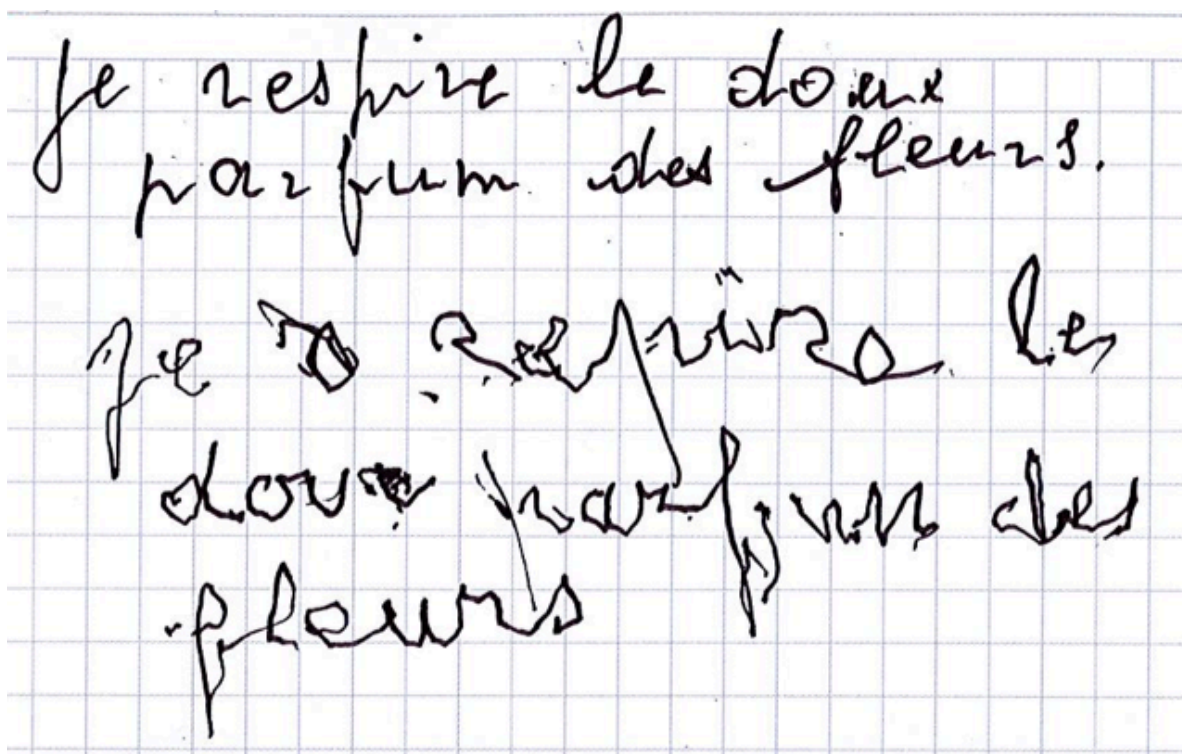 Je respire le doux
parfum des fleurs.
je respire le
doux parfum des
fleurs